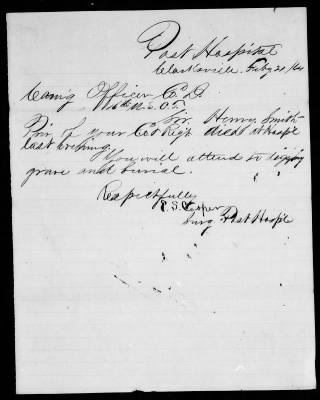 Post Hospital
Clarksville. Feby 21/64
Comg Officer Co D.
16th U.S.C.T.
Sir. Henry Smith
Priv of your Co & Regt died at Hospl
last evening.
You will attend to digging
grave and burial.
Respectfully
Surg. Post Hospl